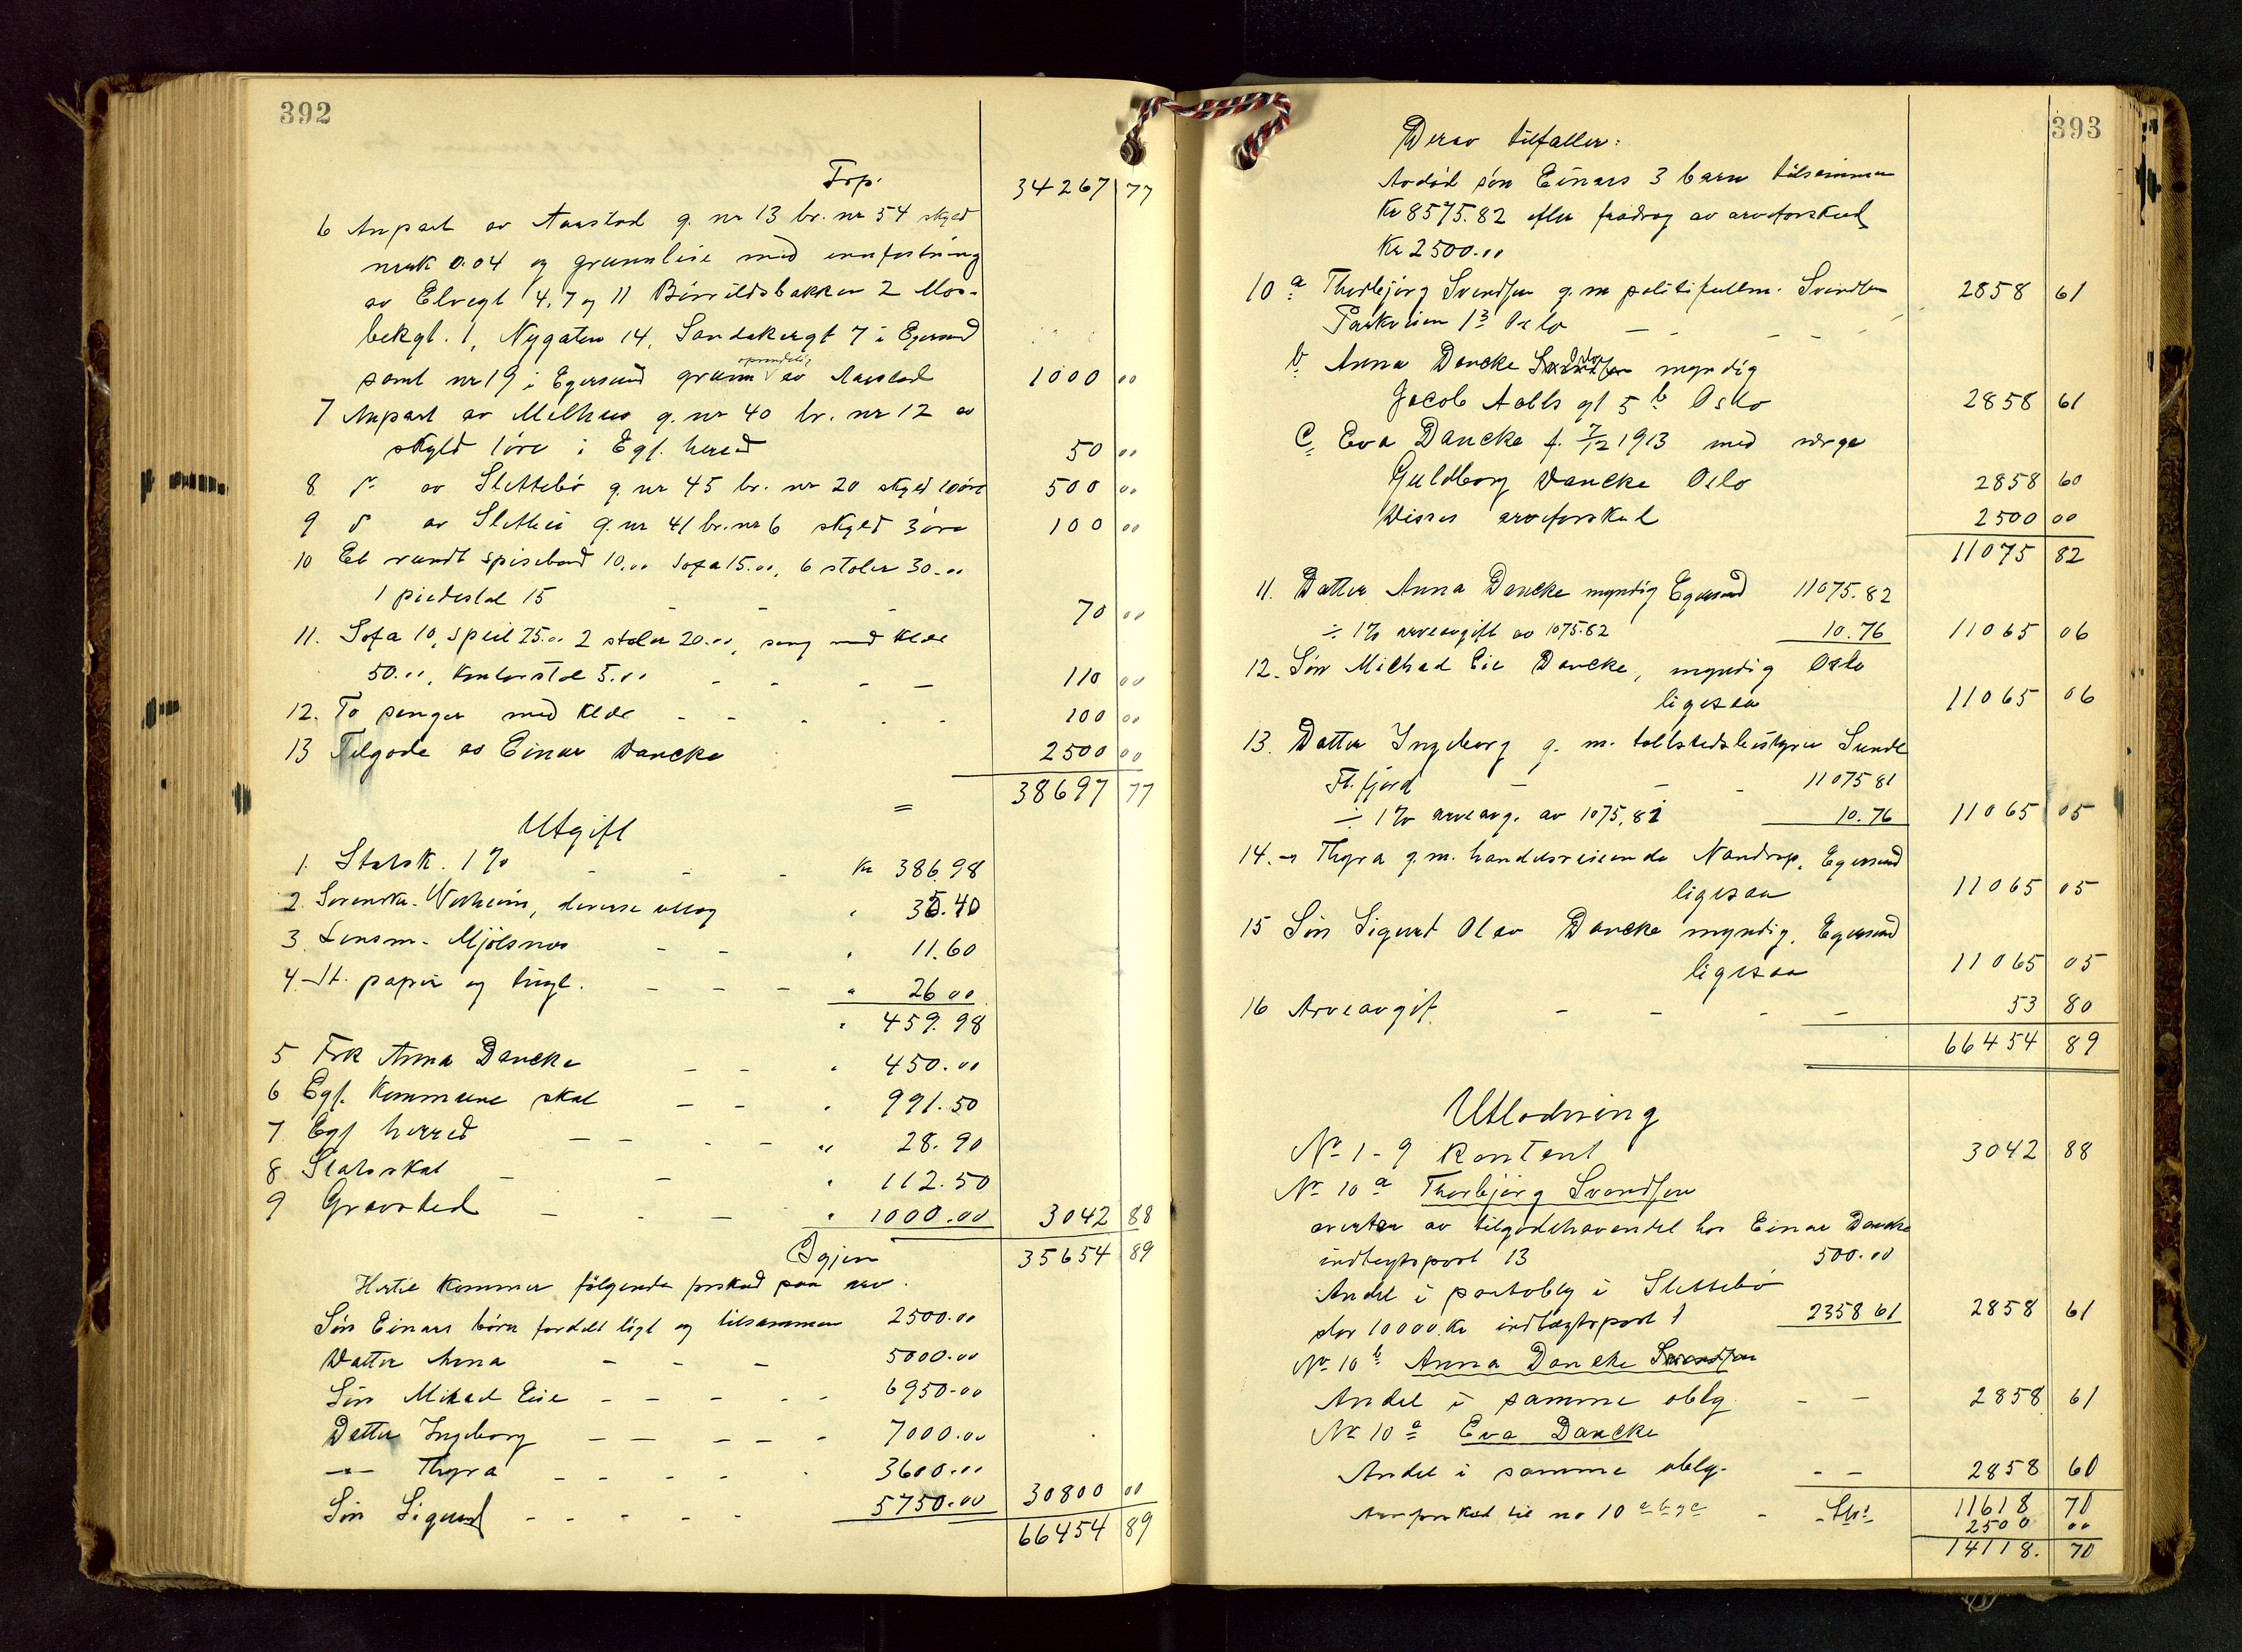 392
Trp. 34267 77
6 Anpart av Aarstad g. nr 13 br. nr 54 skyld
mrk 0.04 og grunnleie med innfestning
av Elvegt 4, 7 og 11 Bövrildsbakken 2 Mos-
bekgt. 1, Nygaten 14, Sandakergt 7 i Egersund
oprindelig
samt nr 19 i Egersund grunn av Aarstad 1000 00
7 Anpart av Melhus g. nr 40 br. nr 12 av
skyld 1 öre i Egs. herred 50 00
8 do av Slettebö g. nr 45 br. nr 20 skyld 10 öre 500 00
9 d av Sletthei g. nr 41 br. nr 6 skyld 3 öre 100 00
10 Et rundt spisebord 10.00 Sofa 15.00, 6 stoler 30.00
1 piedestal 15 - - - 70 00
11. Sofa 10, speil 25.00 2 stoler 20.00, seng med klær
50.00, Kontorstol 5.00 - - - - 110 00
12. To senger med klær - - - - - 100 00
13 Tilgode av Einar Dancke 2500 00
= 38697 77
Utgift
1. Statsk. 1 % - - - Kr 386.98
2. Sorenskr. Verheim, diverse utlæg " 35.40
3. Lensm. Mjölsnes - - " 11.60
4. St. papir og tingl. - - - " 26 00
" 459.98
5 Frk Anna Dancke - - " 450.00
6 Egs. Kommune skat - - " 991.50
7 Egs herred - - - - " 28.90
8 Statsskat - - " 112.50
9 Gravsted - - - " 1000.00 3042 88
Igjen 35654 89
Hertil kommer fölgende forskud paa arv.
Sön Einars börn fordelt likt og tilsammen 2500.00
Datter Anna - - - 5000.00
Sön Mikael Eie - - - - - 6950.00
Datter Ingeborg - - - - - 7000.00
-"- Thyra - - - - - 3600.00
Sön Sigurd - - - - - 5750.00 30800 00
66454 89
393
Derav tilfaller:
Avdöd sön Einars 3 barn tilsammen
Kr 8575.82 efter fradrag av arveforskud
Kr 2500.00
10 a Thorbjörg Svendsen g. m politifullm. Svendsen 2858 61
Parkveien 13 Oslo - - -
b Anna Dancke myndig
Jacob Aalls gt 5 b Oslo 2858 61
c Eva Dancke f. 7/12 1913 med verge
Guldborg Dancke Oslo 2858 60
Disses arveforskud 2500 00
11075 82
11. Datter Anna Dancke myndig Egersund 11075.82
÷ 1 % arveavgift av 1075.82 10.76 11065 06
12. Sön Michael Eie Dancke, myndig Oslo
ligesaa 11065 06
13. Datter Ingeborg g. m. tollstedsbestyrer Sunde
Fl. fjord - - - 11075 81
÷ 1 % arveavg. av 1075,81 10.76 11065 05
14. -"- Thyra g. m. handelsreisende Nandrup, Egersund
ligesaa 11065 05
15 Sön Sigurd Olav Dancke myndig, Egersund
ligesaa 11065 05
16 Arveavgift - - - - 53 80
66454 89
Utlodning
Nr 1-9 Kontant 3042 88
Nr 10 a Thorbjörg Svendsen
arveten av tilgodehavendet hos Einar Dancke
indtegtspost 13 500.00
Andel i pantobly i Slettebö
stor 10000 Kr indtægtspost 1 2358 61 2858 61
Nr 10 b Anna Dancke
Andel i samme oblg - - 2858 61
Nr 10 a Eva Dancke
Andel i samme oblg. - - 2858 60
- 11618 70
Arveforskud til nr 10 a b og c - 2500 00
14118. 70